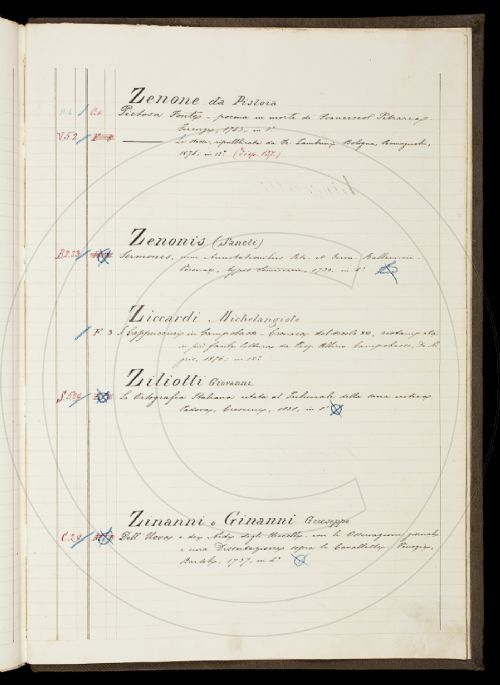 Zenone da Pistoia
Pietosa Fonte - poema in morte di Francesco Petrarca
Firenze, 1743, in 8°
V.5.2 La stessa, ripubblicata da Fr. Zambrini. Bologna, Romagnoli,
1874; in 12° (Disp. 137.)
Zenonis (Sancti)
Sermones, cum Annotationibus Petr. et Ballerini.
Veronae, typis Seminarii, 1739. in 4°
Ziccardi Michelangiolo
F. 3 I Cappuccini in Campobasso - Cronaca del secolo XV, restampata
in più facile lettura da Prof. Campobasso,
1876; in 12°
Ziliotti Giovanni
La Ortografia Italiana citata al Tribunale della sana critica
Padova, Crescini, 1831, in 8°
Zinanni o Ginanni Giuseppe
C.24 Dell' Uova e dei Nidi degli Uccelli, con le Osservazioni giornali
e una Dissertazione sopra le Cavallette. Venezia,
Bortoli, 1737, in 4°